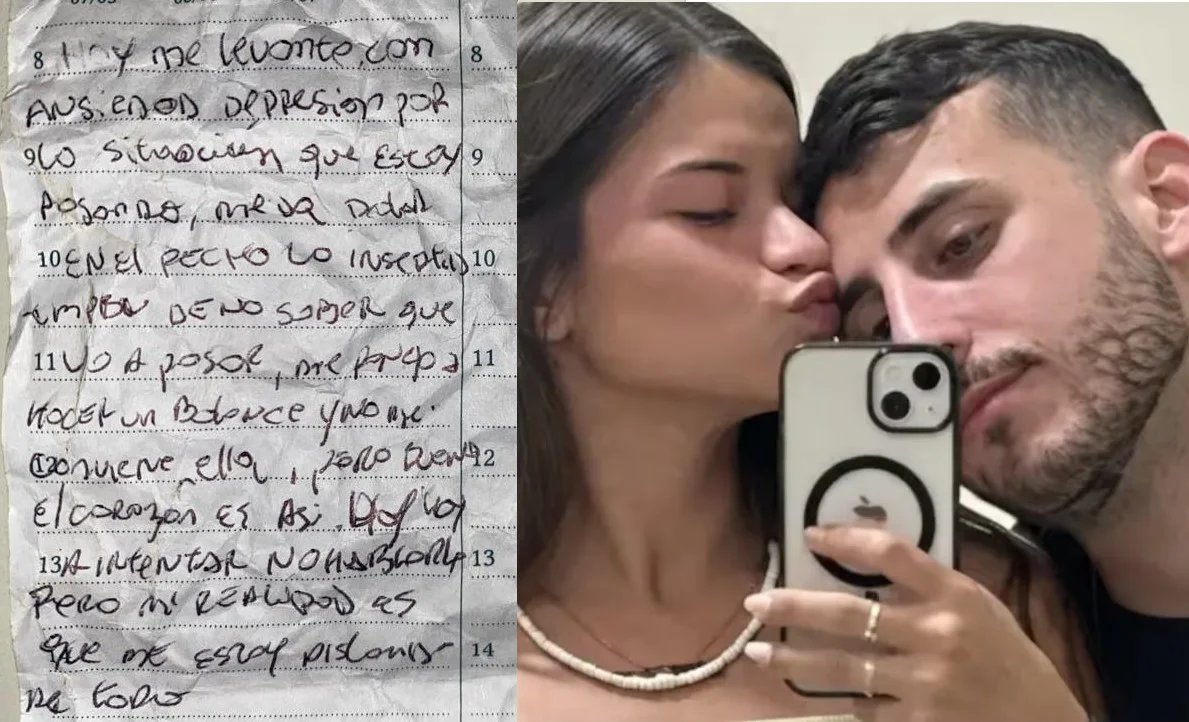 8 Hoy me levante con 8
ANSIEDAD DEPRESION POR
9 LA Situacion que estoy 9
PASANDO, me va DOLOR
10 EN El PECHO LO INSERTID 10
UMBRE DE NO SABER QUE
11 VA A PASAR, me PONGO A 11
HACER un Balance y NO me
conviene ella, PERO bueno 12
El CORAZON ES ASi. Hoy voy
13 A INTENTAR NO HABLARLE 13
PERO mi REALIDAD es
que me estoy 14
DE todo